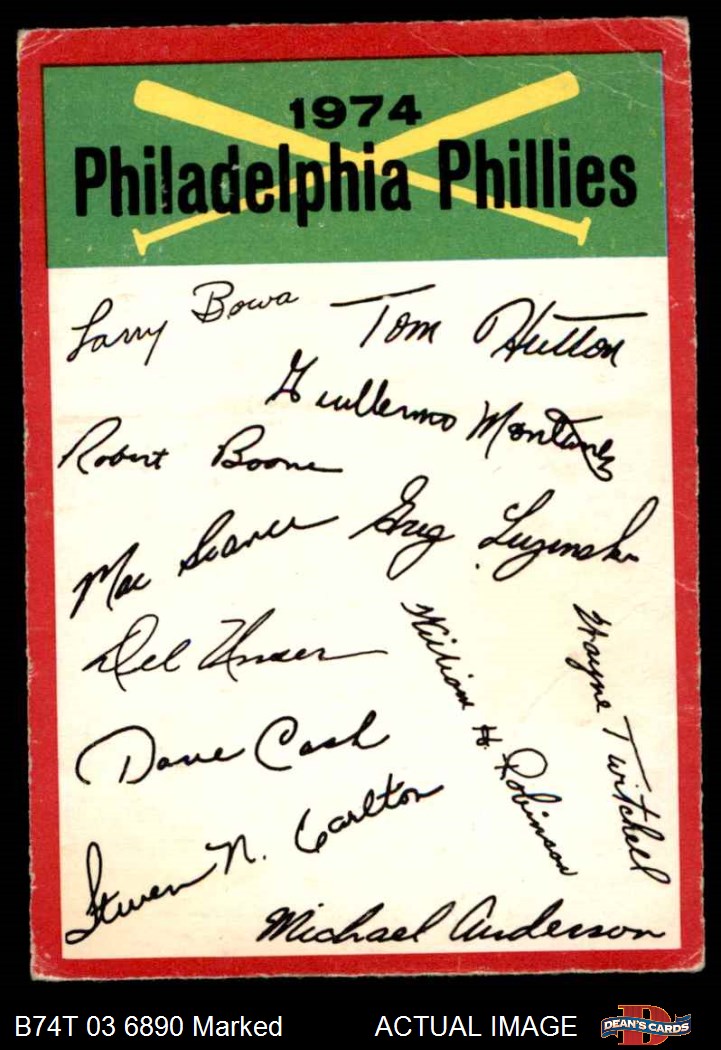 1974
Philadelphia Phillies
Larry Bowa
Tom Hutton
Guillermo Montanez
Robert Boone
Mac Scarce
Greg Luzinski
Del Unser
William H. Robinson
Wayne Twitchell
Dave Cash
Steven N. Carlton
Michael Anderson
B74T 03 6890 Marked
ACTUAL IMAGE
D
DEAN'S CARDS